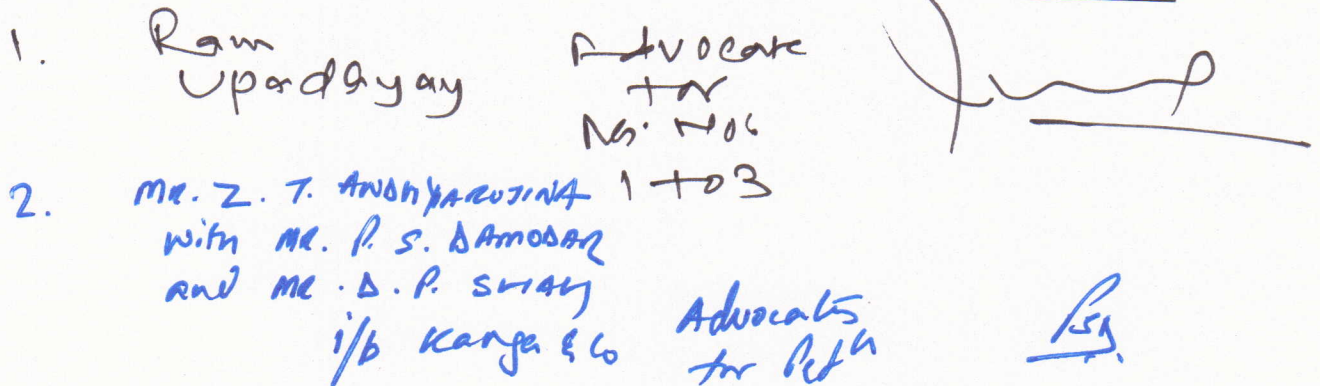 1. Ram Advocate
Upadhyay for
Ns. Nos
1 to 3
2. MR. Z. T. ANDHYARUJINA
with MR. P. S. DAMODAR
and MR. D. P. SHAH
i/b Kanga & Co Advocates
for Petn